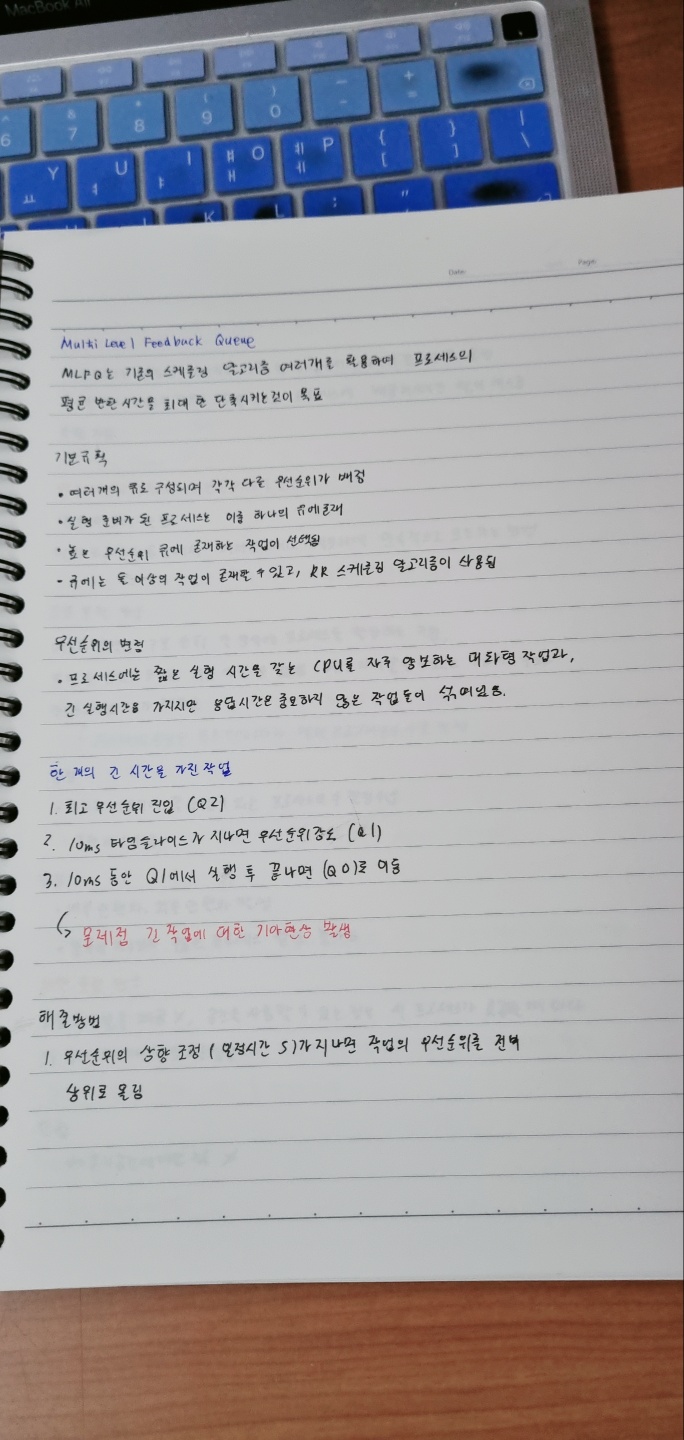 MacBook Air
6 & 7 * 8 ( 9 ) 0 _ - + =
Y ㅛ U ㅕ I ㅑ O ㅒ ㅐ P ㅖ ㅔ { [ } ] | \
K L : ; "
Date: Page:
Multi Level Feedback Queue
MLFQ는 기존의 스케줄링 알고리즘 여러개를 활용하여 프로세스의
평균 반환시간을 최대한 단축시키는것이 목표
기본규칙
• 여러개의 큐로 구성되며 각각 다른 우선순위가 배정
• 실행 준비가 된 프로세스는 이중 하나의 큐에 존재
• 높은 우선순위 큐에 존재하는 작업이 선택됨
- 큐에는 둘 이상의 작업이 존재할 수 있고, RR 스케줄링 알고리즘이 사용됨
우선순위의 변경
• 프로세스에는 짧은 실행 시간을 갖는 CPU를 자주 양보하는 대화형 작업과,
긴 실행시간을 가지지만 응답시간은 중요하지 않은 작업들이 섞여있음.
한 개의 긴 시간을 가진작업
1. 최고 우선순위 진입 (Q2)
2. 10ms 타임슬라이스가 지나면 우선순위감소 (Q1)
3. 10ms 동안 Q1에서 실행 후 끝나면 (Q0)로 이동
문제점 긴 작업에 대한 기아현상 발생
해결방법
1. 우선순위의 상향 조정 ( 일정시간 S)가 지나면 작업의 우선순위를 전부
상위로 올림